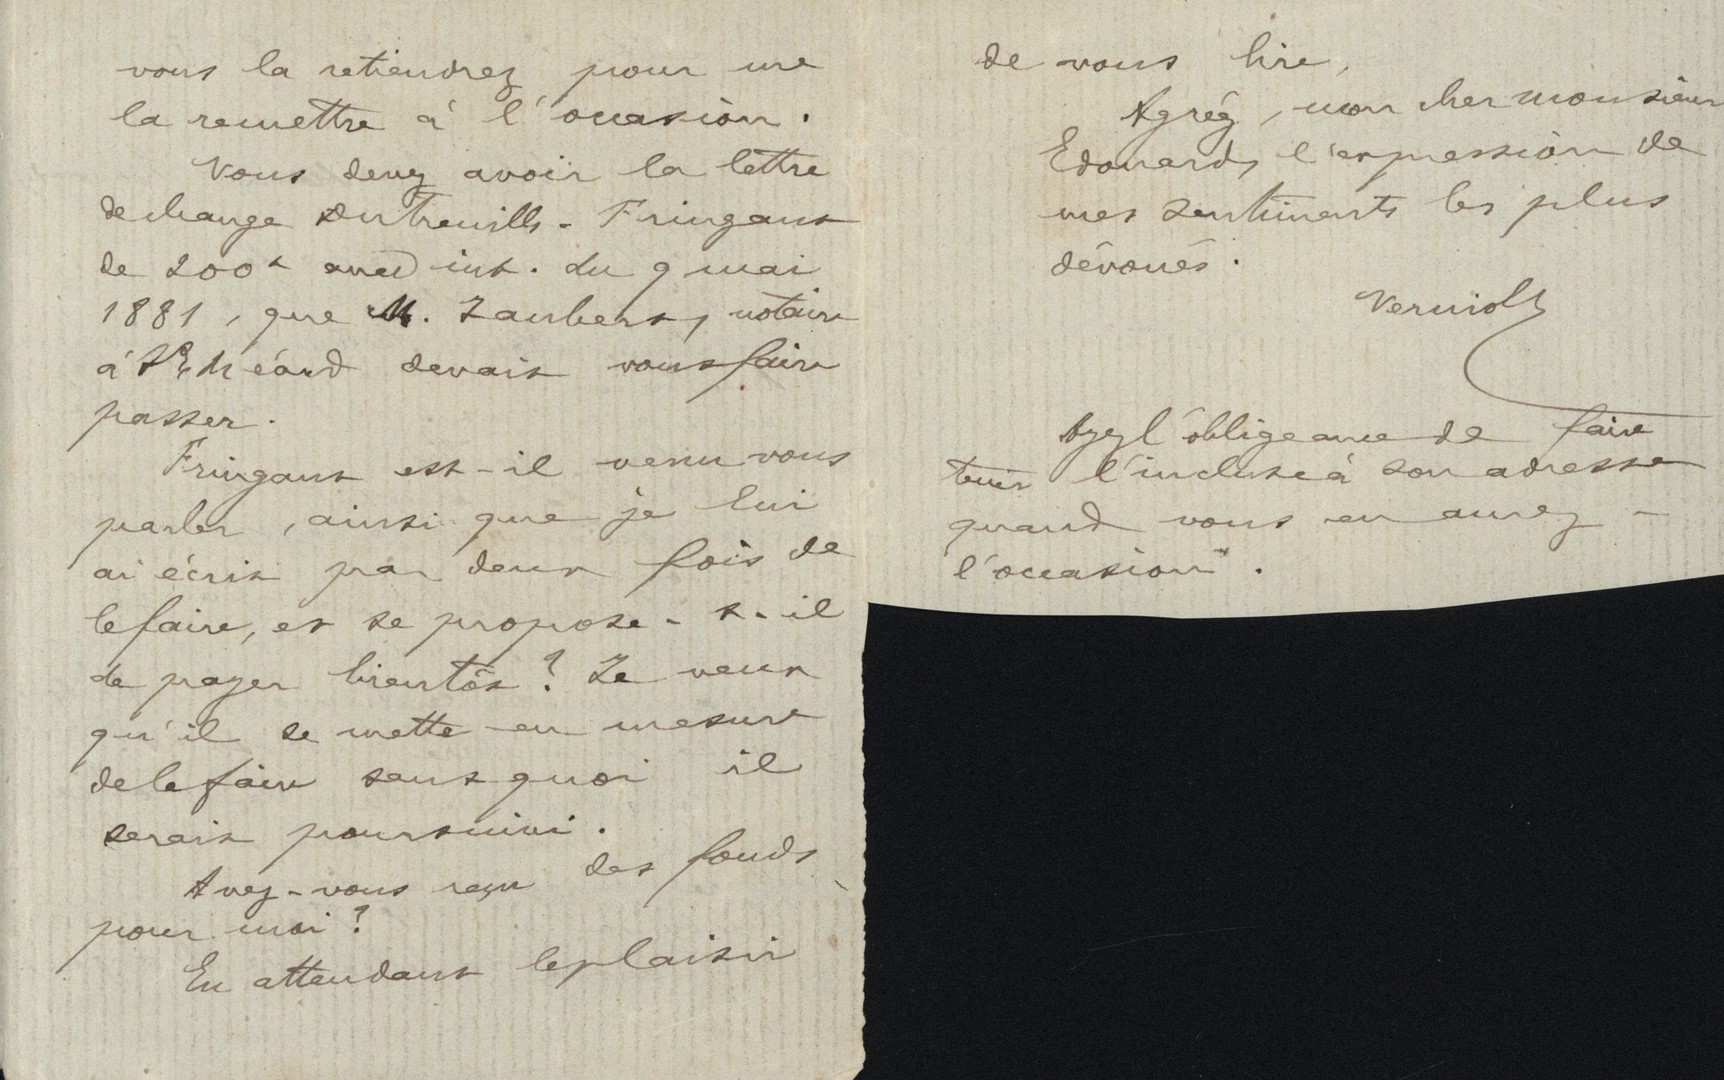 vous la retiendrez pour me
la remettre à l'occasion.
Vous devez avoir la lettre
de change Dutreuilh - Fringant
de 200f avec int. du 9 mai
1881, que M. Jaubert, notaire
à St Méard devait vous faire
passer.
Fringant est-il venu vous
parler, ainsi que je lui
ai écrit par deux fois de
le faire, et se propose-t-il
de payer bientôt ? Je veux
qu'il se mette en mesure
de le faire sans quoi il
serait poursuivi.
Avez-vous reçu des fonds
pour moi ?
En attendant le plaisir
de vous lire,
Agréz, mon cher monsieur
Edouard, l'expression de
mes sentiments les plus
dévoués.
Ayez l'obligeance de faire
tenir l'incluse à son adresse
quand vous en aurez -
l'occasion.